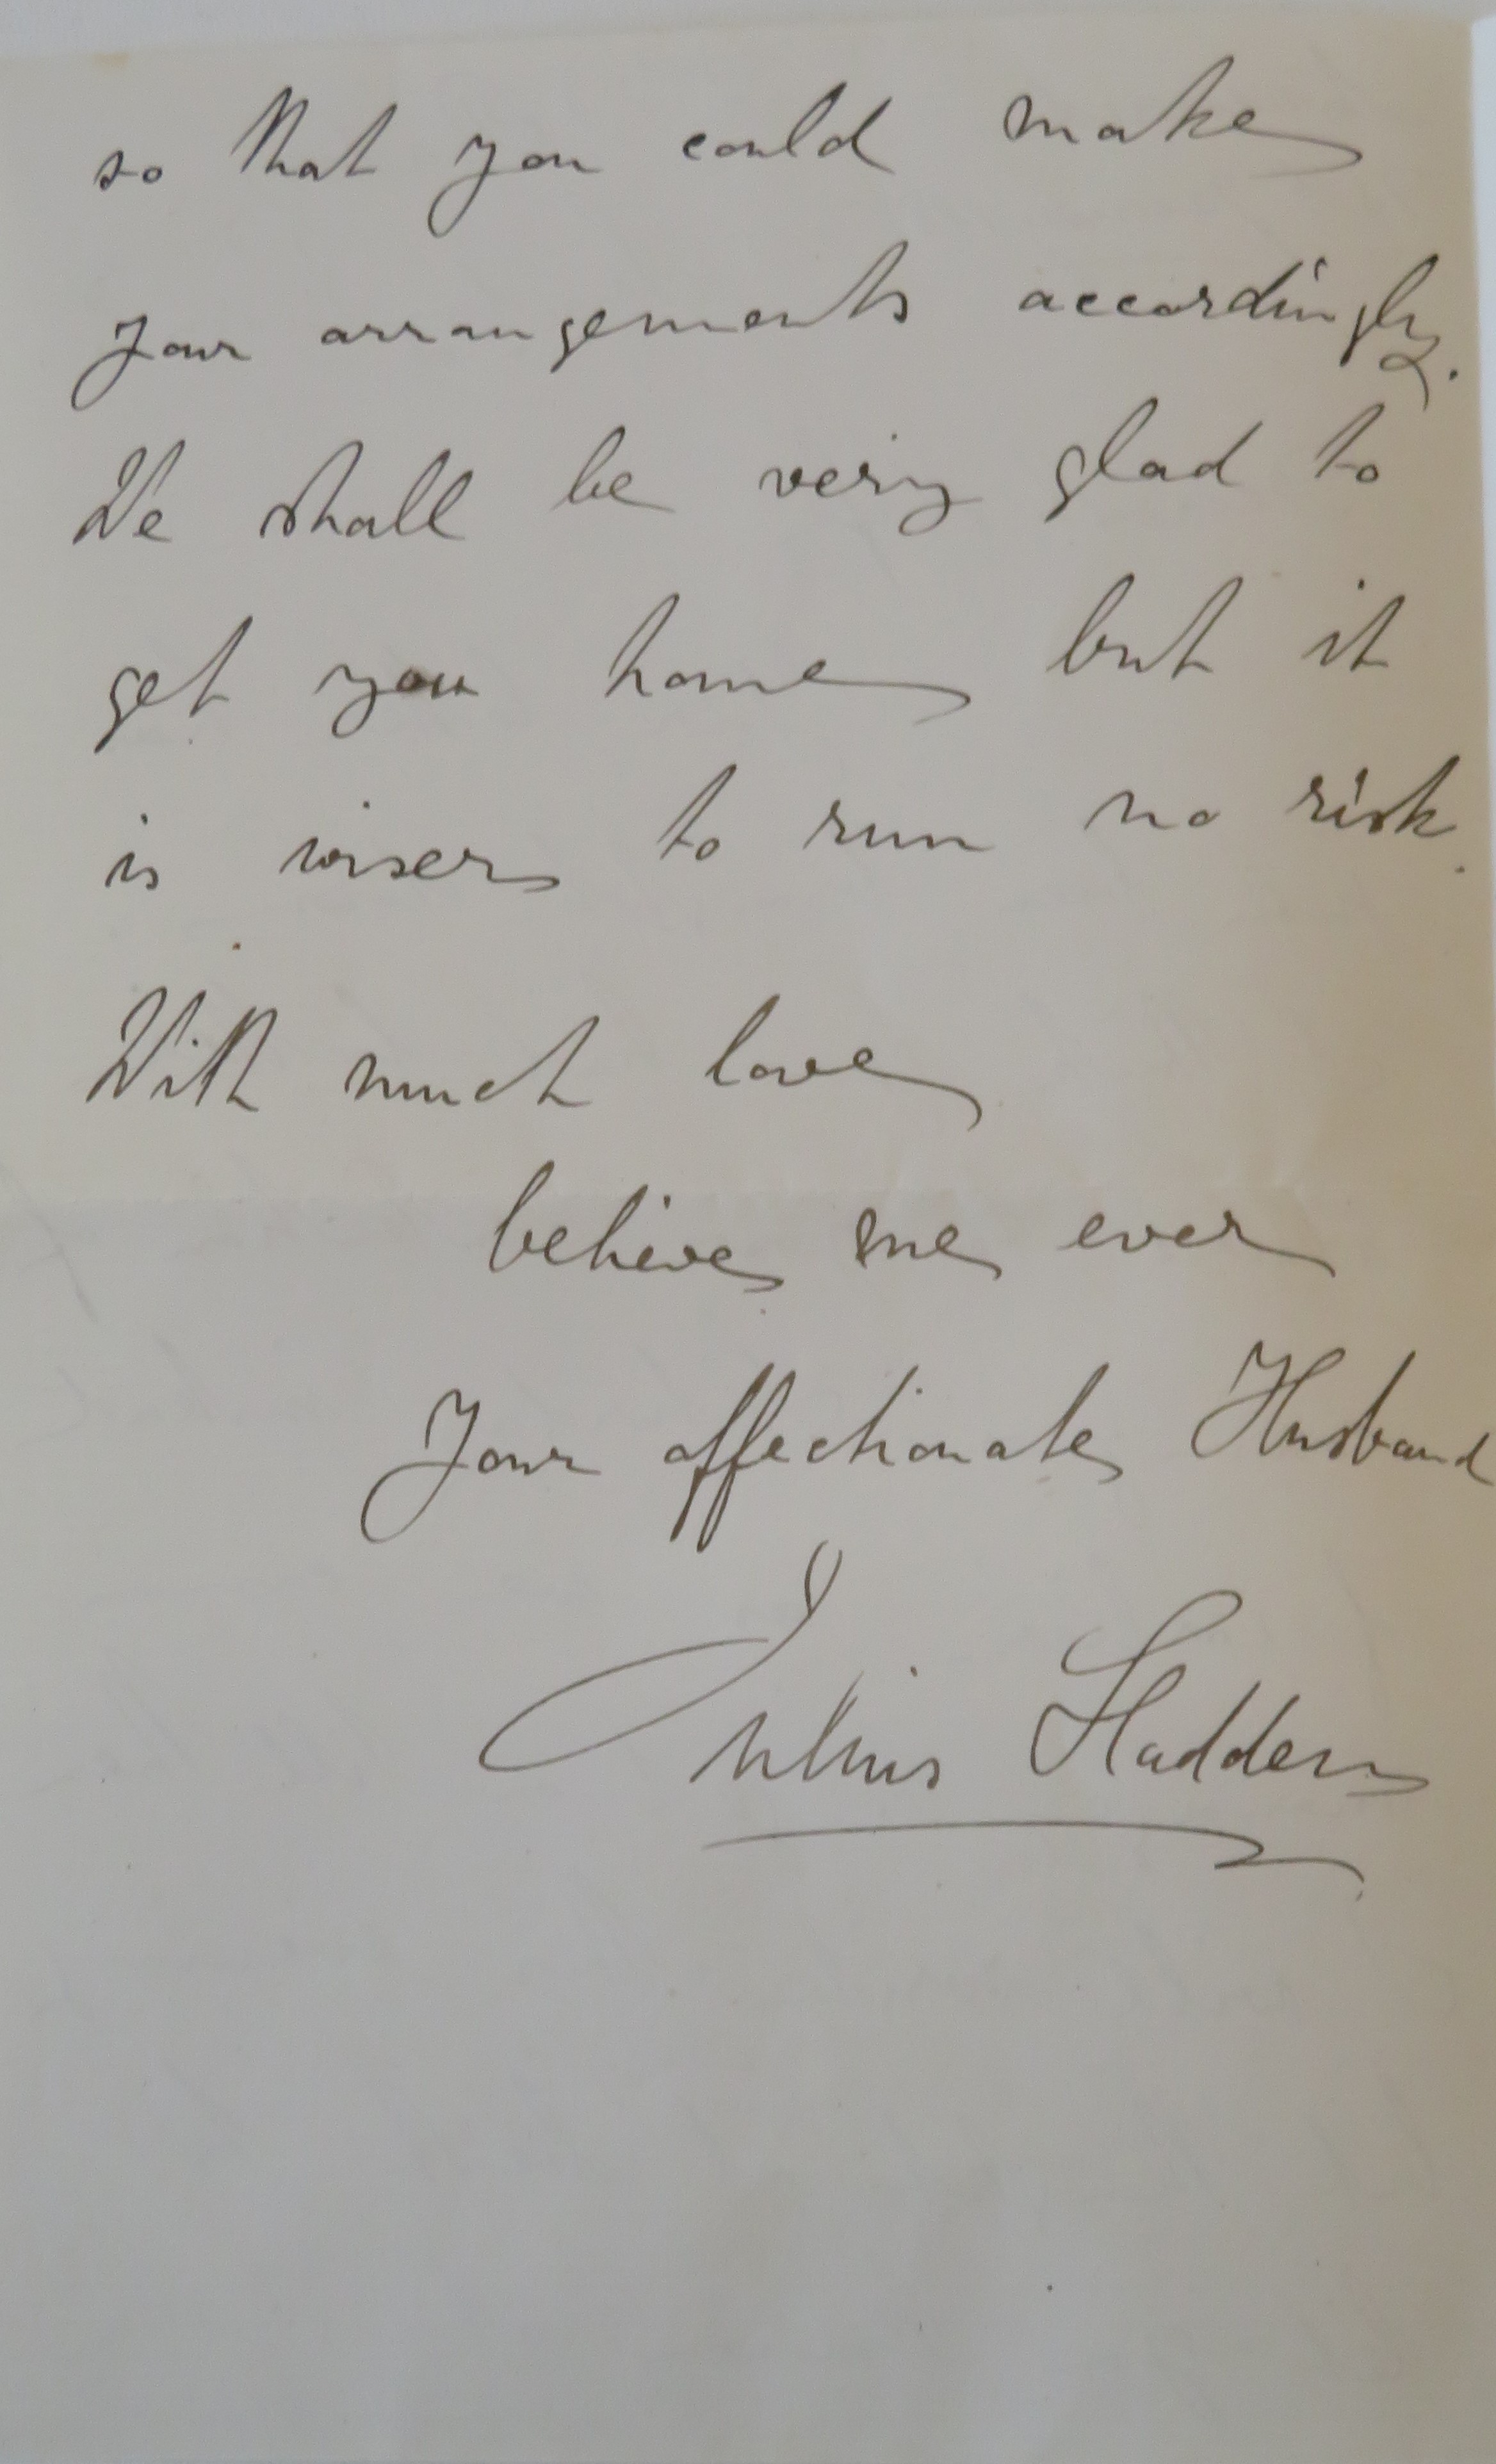 so that you could make
your arrangements accordingly.
We shall be very glad to
get you home but it
is wiser to run no risk.
With much love
believe me ever
Your affectionate Husband
Julius Hadden